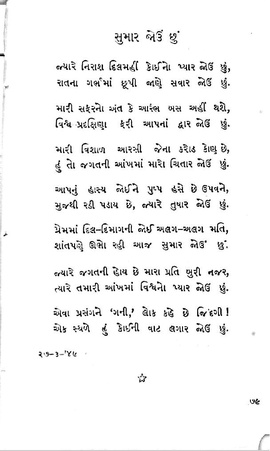 સુમાર જોઉં છું
જ્યારે નિરાશ દિલમહીં કોઈનો પ્યાર જોઉં છું,
રાતના ગર્ભમાં છૂપી જાણે સવાર જોઉં છું.
મારી સફરનો અંત કે આરંભ બસ અહીં થશે,
વિશ્વ પ્રદક્ષિણા ફરી આપનાં દ્વાર જોઉં છું.
મારી વિશાળ આરસી જેના કરોડ કોણ છે,
હું તો જગતની આંખમાં મારો ચિતાર જોઉં છું.
આપનું હાસ્ય જોઈને પુષ્પ હસે છે ઉપવને,
મુજથી રડી પડાય છે, જ્યારે તુષાર જોઉં છું.
પ્રેમમાં દિલ-દિમાગની જોઈ અલગ-અલગ મતિ,
શાંતપણે ઊભો રહી આજ સુમાર જોઉં છું.
જ્યારે જગતની હોય છે મારા પ્રતિ બુરી નજર,
ત્યારે તમારી આંખમાં વિશ્વનો પ્યાર જોઉં છું.
એવા પ્રસંગને 'ગની,' લોક કહે છે જિંદગી!
એક સ્થળે હું કોઈની વાટ લગાર જોઉં છું.
૨૭-૩-'૪૫
૭૯